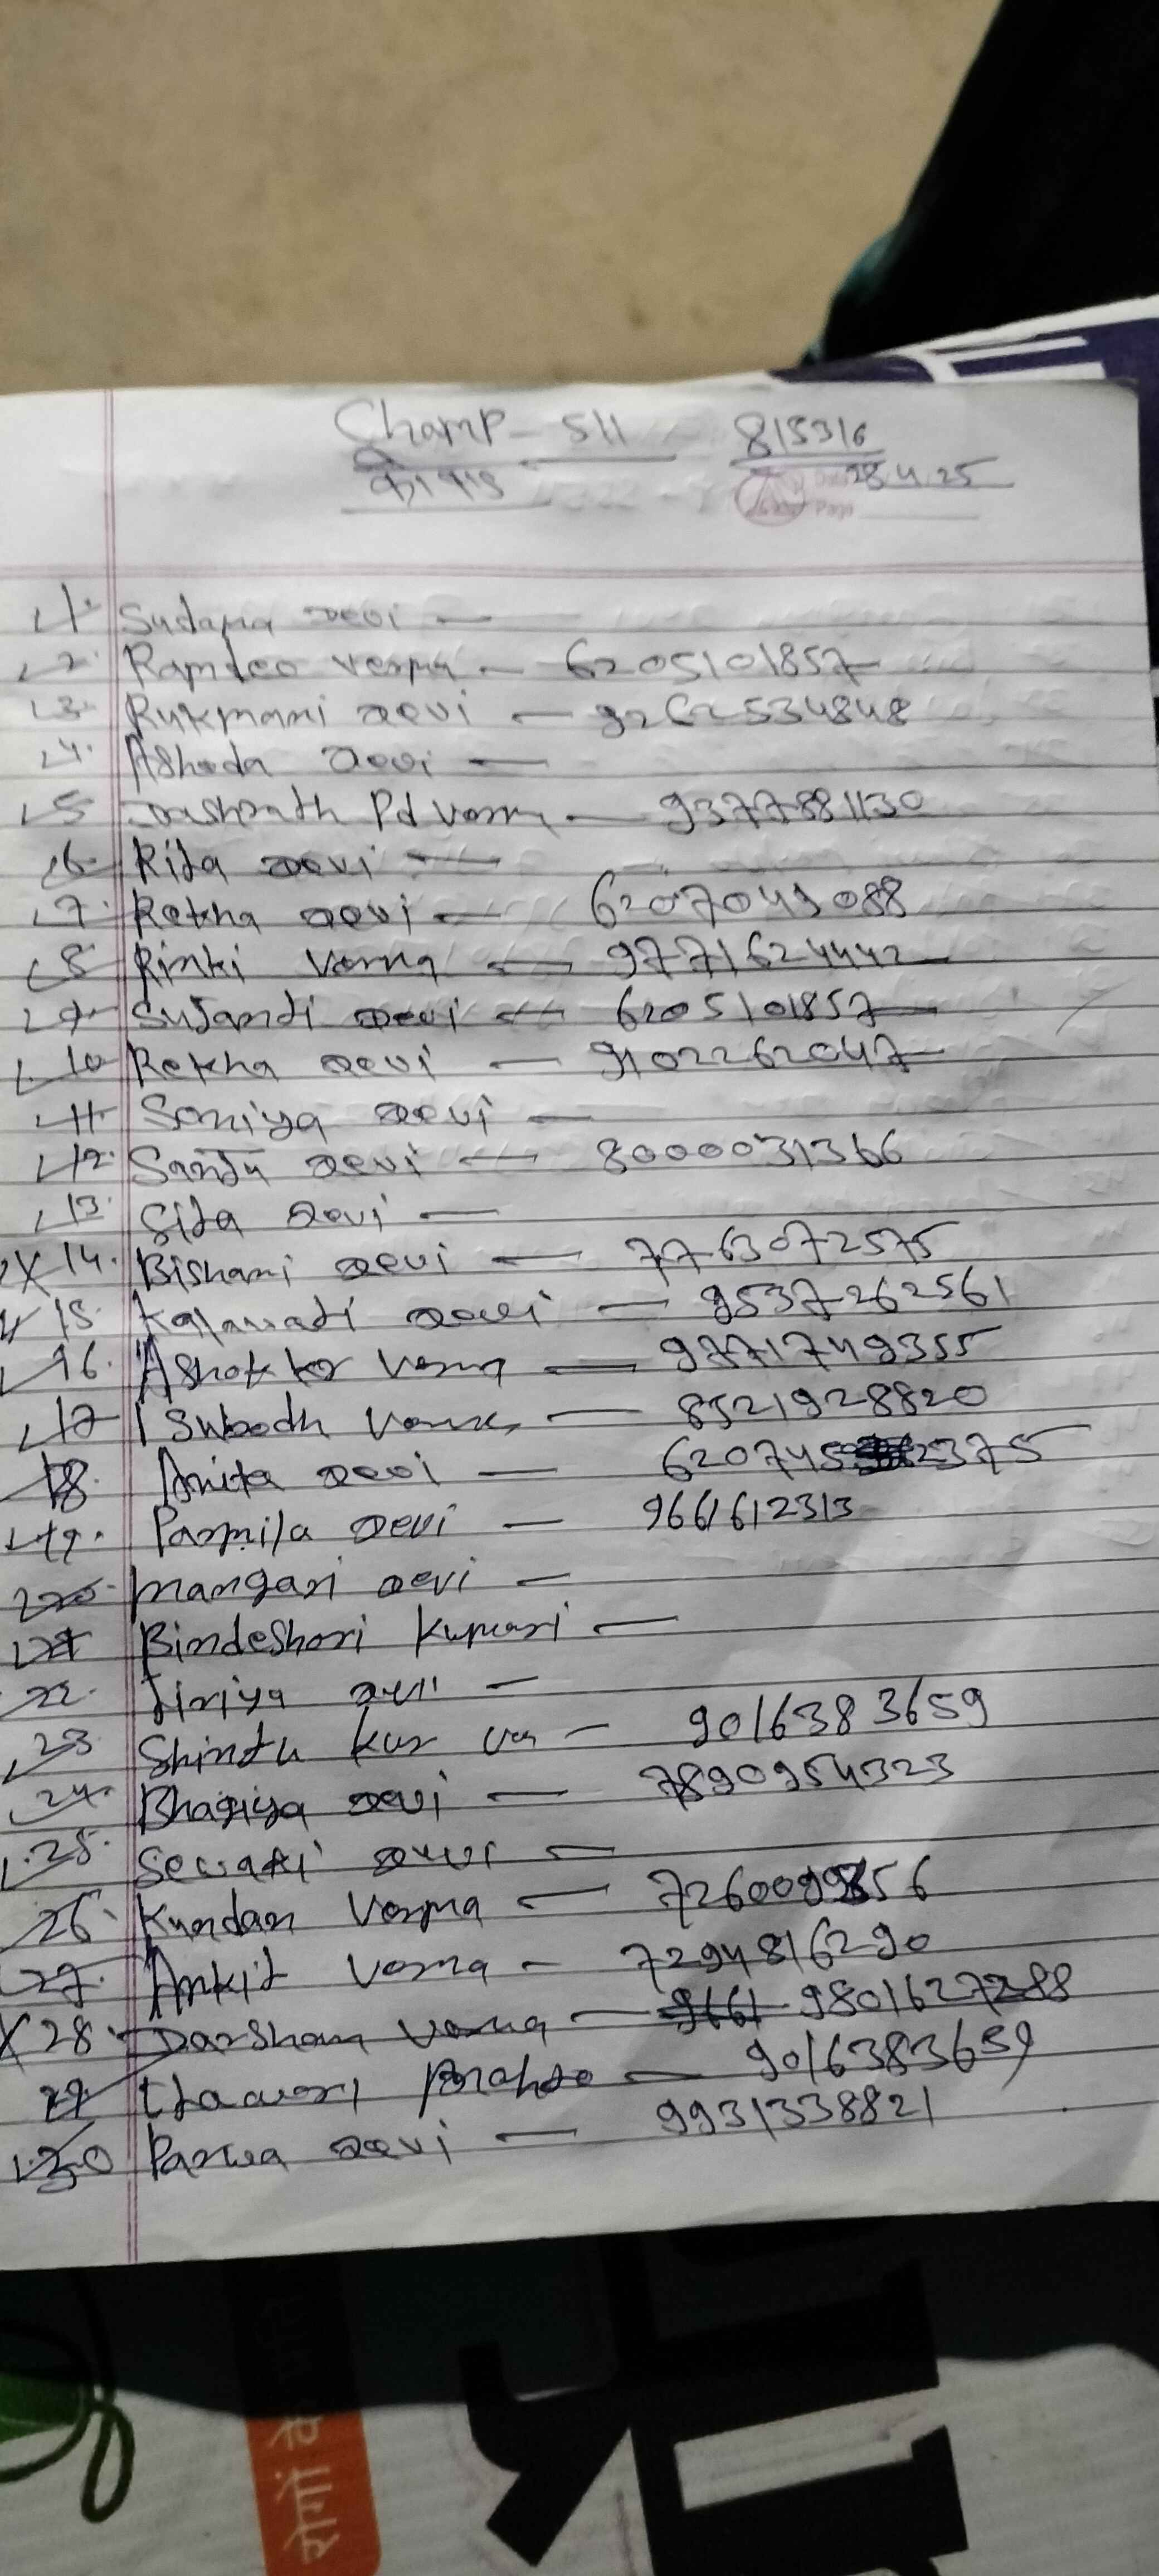 Champ - 511 815316
28.4.25
1. Sudama Devi —
2. Ramdeo Verma — 6205101857
3. Rukmani Devi — 9262534848
4. Ashoda Devi —
5 Dashrath Pd Verma — 9377881130
6. Rita Devi —
7. Rekha Devi — 6207049088
8 Rinki Verma — 9771624442
9. Sujanti Devi — 6205101857
10 Rekha Devi — 9102262047
11. Soniya Devi —
12. Sanju Devi — 8000031366
13. Gita Devi —
X 14. Bishani Devi — 7763072575
15. Kalawati Devi — 9537262561
16. Ashok kr Verma —
17 Subodh Verma — 8521928820
18. Anita Devi —
19. Parmila Devi — 9661612313
20. Mangari Devi —
21 Bindeshori Kumari —
22. Jiriya Devi —
23 Shindu kur — 9016383659
24. Bhagiya Devi — 7890954323
25. Devi —
26. Kundan Verma —
27. Ankit Verma — 7294816290
X 28. Darshan Verma — 9661 9801627288
29. Mahto — 9016383659
30 Parwa Devi — 9931338821